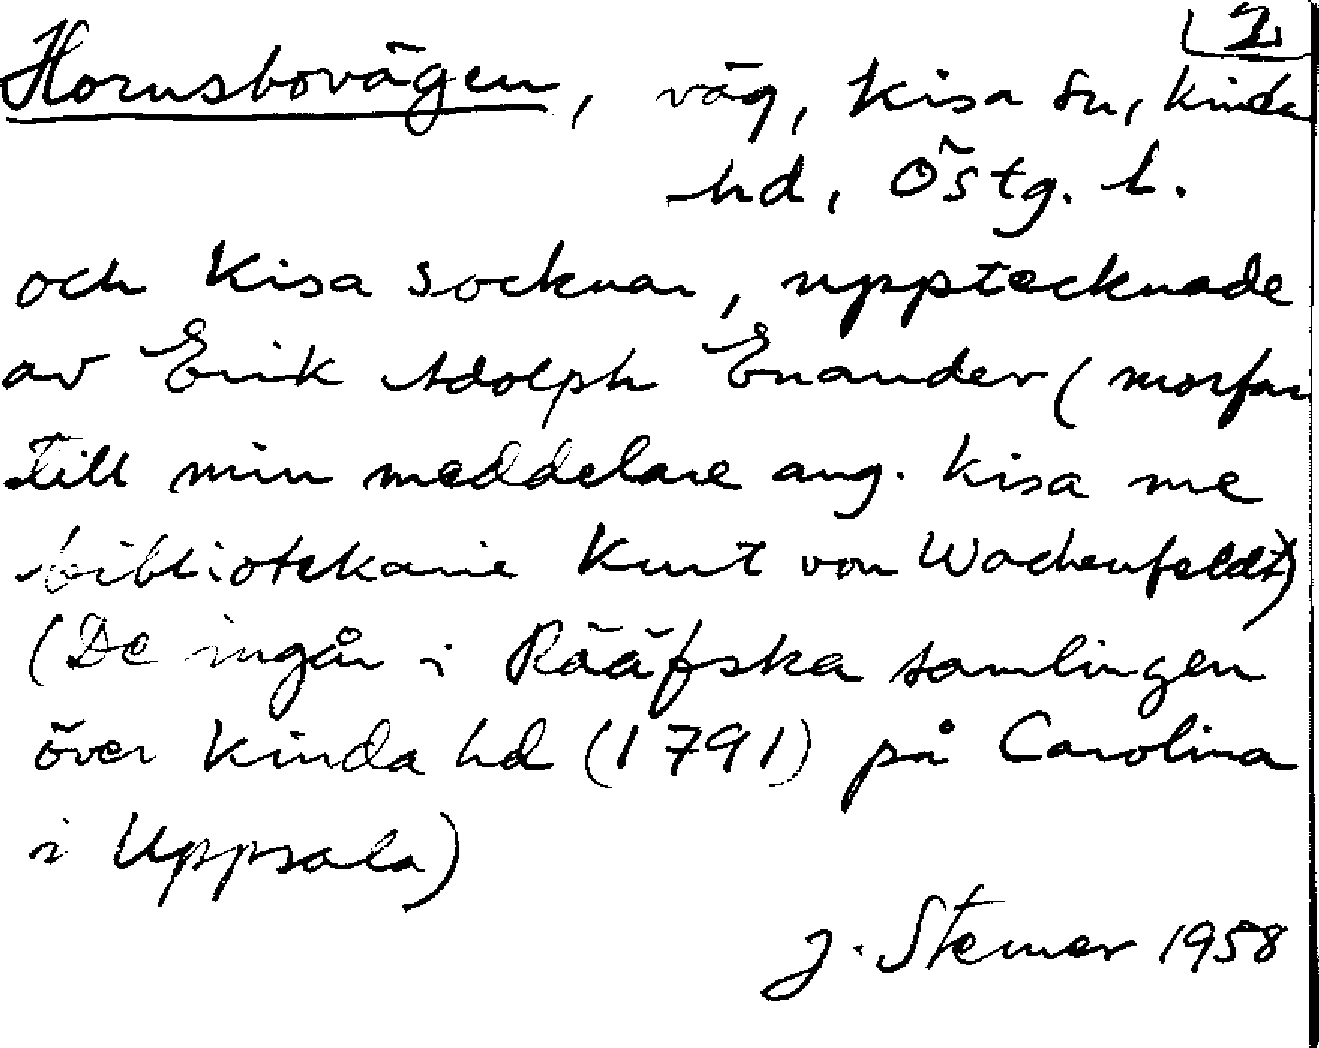 2
Hornsbovägen, väg, Kisa sn, Kinda
hd, Östg. l.
och Kisa socknar, upptecknade
av Erik Adolph Enander (morfar
till min meddelare ang. Kisa me
bibliotekarie Kurt von Wachenfeldt)
(De ingår i Rääfska samlingen
över Kinda hd (1791) på Carolina
i Uppsala)
J. Sterner 1958